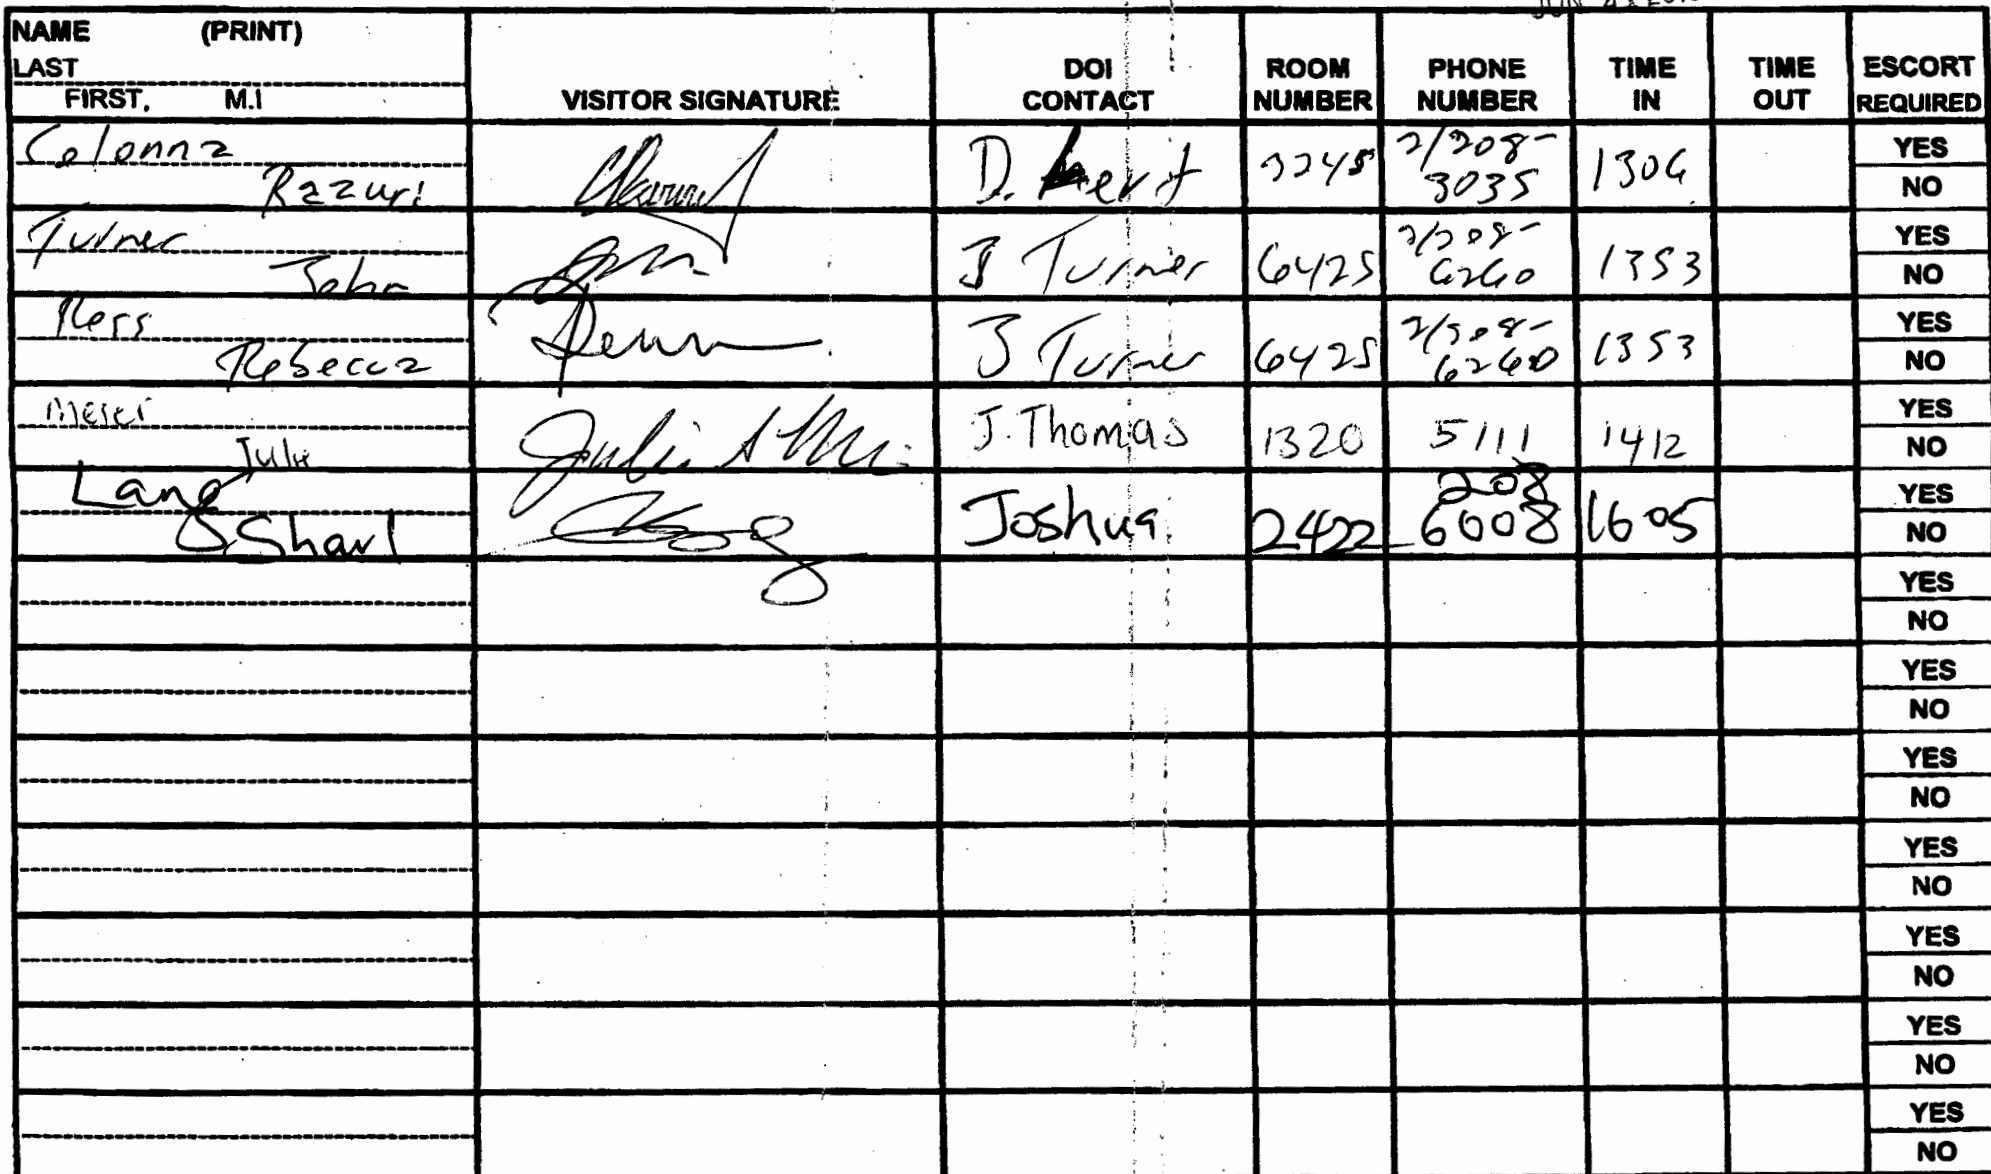 JUN
NAME (PRINT)
LAST
FIRST, M.I
VISITOR SIGNATURE
DOI
CONTACT
ROOM
NUMBER
PHONE
NUMBER
TIME
IN
TIME
OUT
ESCORT
REQUIRED
Colonna
Razuri
D.
3245
2/208-
3035
1306
YES
NO
Turner
John
J Turner
6425
2/208-
6260
1353
YES
NO
Ress
Rebecca
J Turner
6425
2/208-
6260
1353
YES
NO
Meier
Julie
Julie A
J. Thomas
1320
5111
1412
YES
NO
Lang
Sharl
Joshua
2422
208
6008
1605
YES
NO
YES
NO
YES
NO
YES
NO
YES
NO
YES
NO
YES
NO
YES
NO